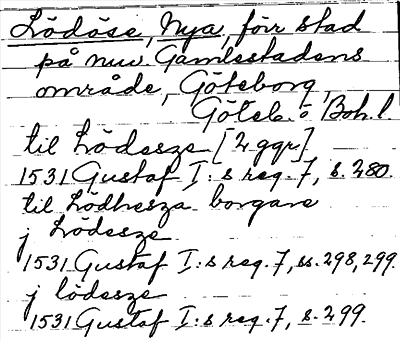 Lödöse, Nya, förr stad
på nuv. Gamlestadens
område, Göteborg,
Göteb. o Boh. l
til Lödesze [2 ggr]
1531 Gustaf I:s reg. 7, s. 280.
til Lödhesza borgare
j Lödesze
1531 Gustaf I:s reg. 7, ss. 298, 299.
j lödesze
1531 Gustaf I:s reg. 7, s. 299.